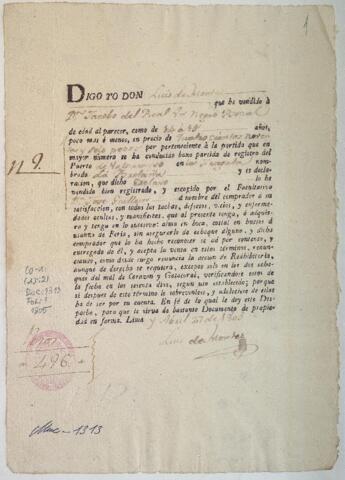 1
DIGO YO DON Luis de
que he vendido à
Dn. Jacobo del Real Un Negro Bozal
de edad al parecer, como de años,
poco mas ó menos, en precio de
y seis pesos por perteneciente à la partida que en
mayor numero se ha conducido baxo partida de registro del
Puerto de Valparaiso en la nom-
brada y es decla-
racion, que dicho Esclavo lo he
vendido bien registrado, y escogido por el Facultativo
Dn. Jose à nombre del comprador a su
satisfaccion, con todas las tachas, defectos, vicios, y enferme-
dades ocultas, y manifiestas, que al presente tenga, ó adquie-
ra y tenga en lo sucesivo: alma en boca, costal en huesos à
usanza de Feria, sin asegurarlo de achaque alguno, y dicho
comprador que lo ha hecho reconocer se dá por contento, y
entregado de él, y acepta la venta en estos términos, renun-
ciando, como desde luego renuncia la accion de Redhibitoria,
aunque de derecho se requiera, excepto solo en los dos acha-
ques del mal de Corazon y Gotacoral, verificandose como de
la fecha en los sesenta dias, segun uso establecido; porque
si despues de este término le sobreviniese, y adoleciese de ellos
ha de ser por su cuenta. En fé de lo qual le doy este Des-
pacho, para que le sirva de bastante Documento de propie-
dad en forma. Lima y Abril 27 de 1805
Luis de
n 9.
CO-
DOC: 1313
FOR: 1
1805
496
1313